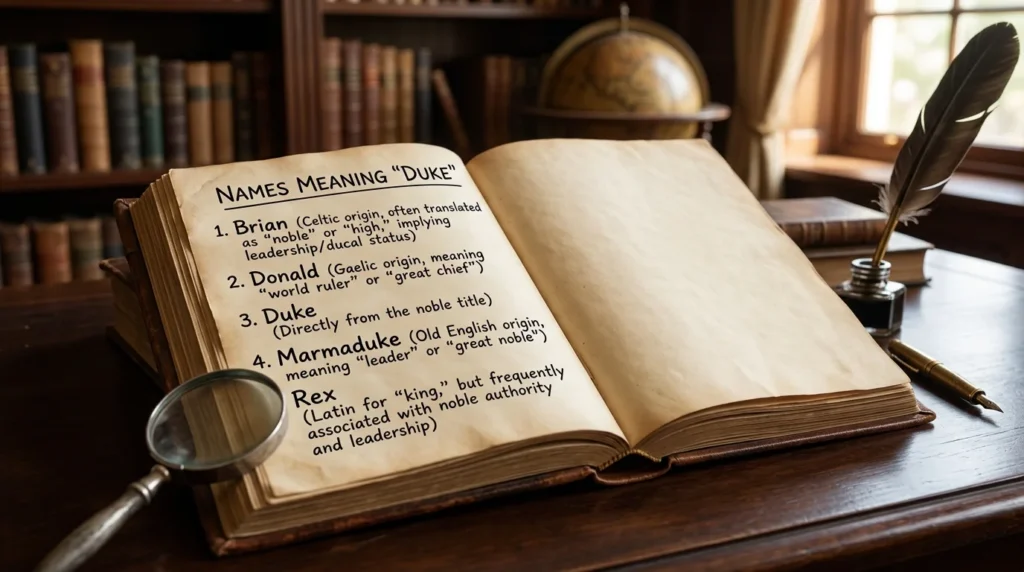 NAMES MEANING "DUKE"
1. Brian (Celtic origin, often translated
as "noble" or "high," implying
leadership/ducal status)
2. Donald (Gaelic origin, meaning
"world ruler" or "great chief")
3. Duke
(Directly from the noble title)
4. Marmaduke (Old English origin,
meaning "leader" or "great noble")
Rex
(Latin for "king," but frequently
associated with noble authority
and leadership)